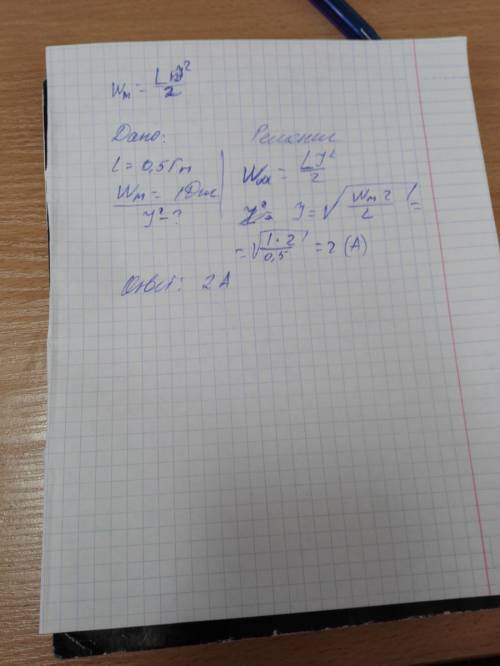 Wм = LI²/2
Дано:
L = 0,5 Гн
Wм = 1 Дж
I - ?
Решение
Wм = LI²/2
I = √(Wм 2/L) =
= √(1·2/0,5) = 2 (А)
Ответ: 2 А